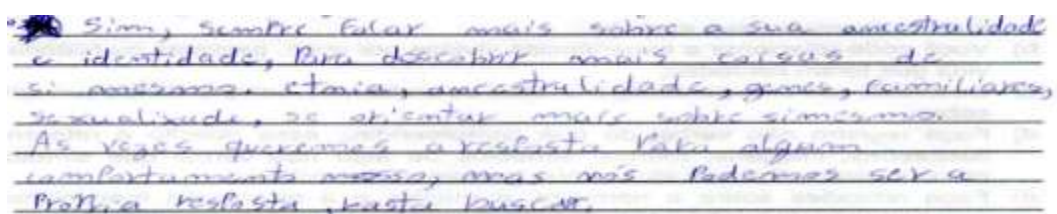 Sim, sempre falar mais sobre a sua ancestralidade
e identidade, Para descobrir mais coisas de
si mesmo. etnia, ancestralidade, genes, familiares,
se orientar mais sobre simesmo.
As vezes queremos a resposta Para algum
comportamento nosso, mas nós Podemos ser a
Propria resposta, basta buscar.